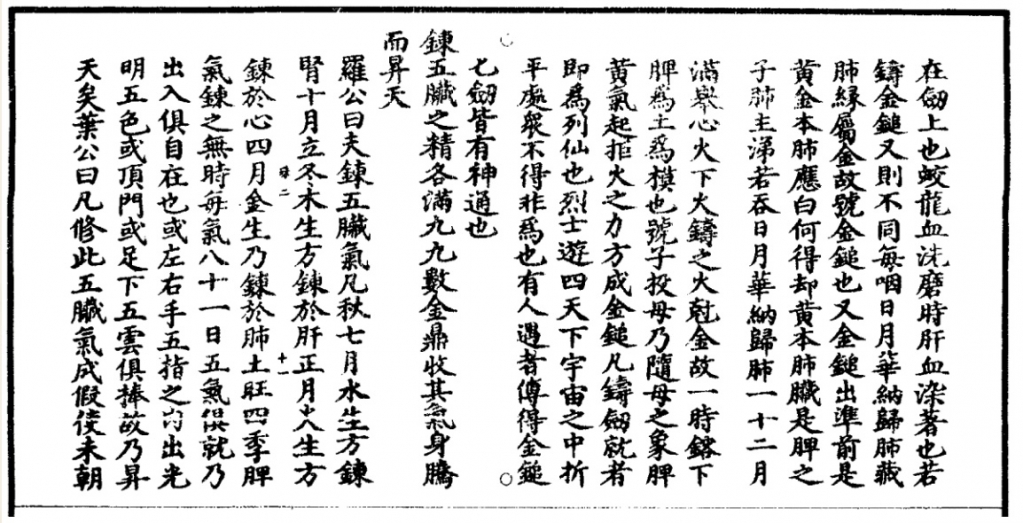 在劒上也蛟龍血洗磨時肝血染著也若
鑄金鎚又則不同每咽日月華納歸肺藏
肺緣屬金故號金鎚也又金鎚出準前是
黃金本肺應白何得却黃本肺臟是脾之
子肺主涕若吞日月華納歸肺一十二月
滿舉心火下火鑄之火尅金故一時鎔下
脾爲土爲模也號子投母乃隨母之象脾
黃氣起拒火之力方成金鎚凡鑄劒就者
即爲列仙也烈士遊四天下宇宙之中折
平處衆不得非爲也有人遇者傳得金鎚
七劒皆有神通也
鍊五臟之精各滿九九數金鼎收其氣身騰
而昇天
羅公曰夫鍊五臟氣凡秋七月水生方鍊
腎十月立冬木生方鍊於肝正月火生方
二 十一
鍊於心四月金生乃鍊於肺土旺四季脾
氣鍊之無時每氣八十一日五氣俱就乃
出入俱自在也或左右手五指之内出光
明五色或頂門或足下五雲俱捧故乃昇
天矣葉公曰凡修此五臟氣成假使未朝